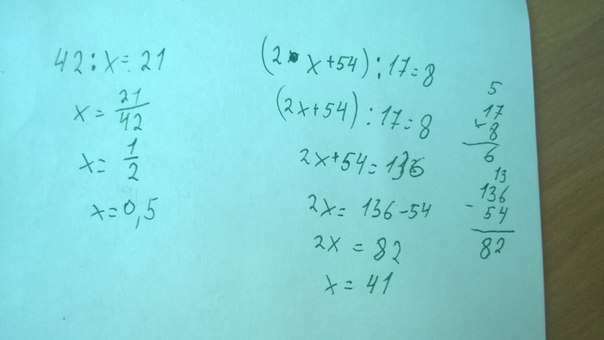 42:x=21
x=21/42
x=1/2
x=0,5
(2·x+54):17=8
(2x+54):17=8
2x+54=136
2x=136-54
2x=82
x=41
5
17
×8
6
13
136
-54
82